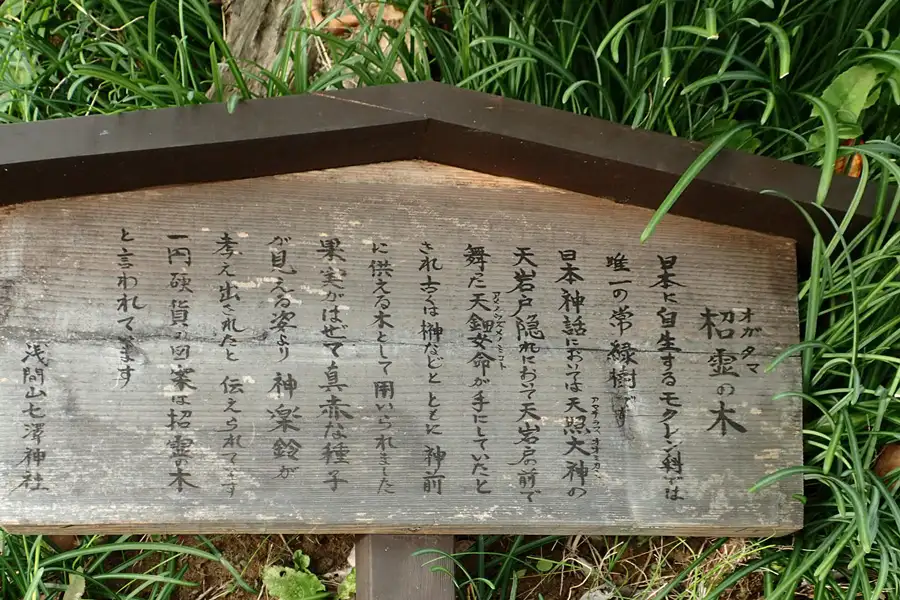 オガタマ
招霊の木
日本に自生するモクレン科では
唯一の常緑樹です
日本神話においては天照大神の
アマテラスオオミカミ
天岩戸隠れにおいて天岩戸の前で
舞った天鈿女命が手にしていたと
アメノウズメノミコト
され古くは榊などとともに神前
に供える木として用いられました
果実がはぜて真赤な種子
が見える姿より神楽鈴が
考え出されたと伝えられてます
一円硬貨の図案は招霊の木
と言われてます
浅間山七澤神社